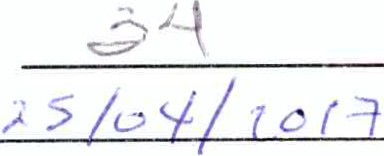 34
25/04/2017